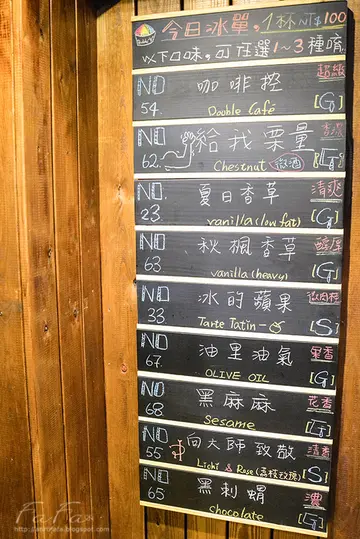 今日冰單, 1杯NT$100
以下口味, 可任選1~3種唷
NO 54. 咖啡控 超級
Double Café [G]
NO 62. 給我栗量 香濃
Chestnut 微酒 [G]
NO 23 夏日香草 清爽
vanilla (low fat) [G]
NO 63 秋楓香草 醇厚
vanilla (heavy) [G]
NO 33 冰的蘋果 微肉桂
Tarte Tatin [S]
NO 67. 油里油氣 果香
OLIVE OIL [G]
NO 68 黑麻麻 花香
Sesame [G]
NO 55 向大師致敬 清香
Lichi & Rose (荔枝玫瑰) [S]
NO 65 黑刺蝟 濃
chocolate [G]